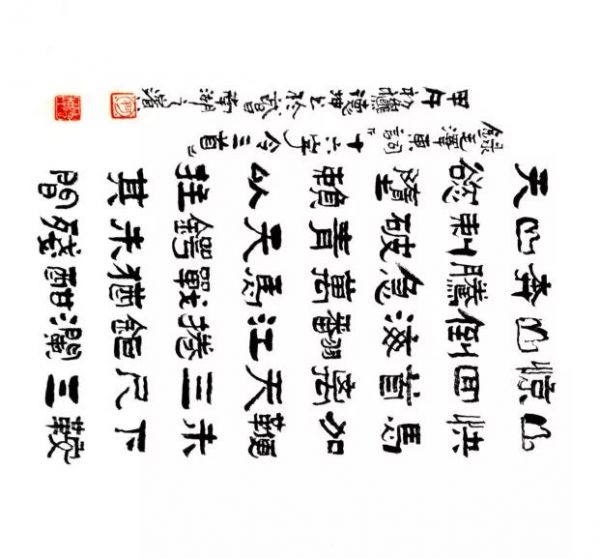 山快馬加鞭未下鞍
惊回首離天三尺三
山倒海翻江捲巨瀾
奔騰急萬馬戰猶酣
山刺破青天鍔未殘
天欲墮賴以拄其間
錄毛澤東詞"十六字令三首"
德坤書於武昌南湖之濱